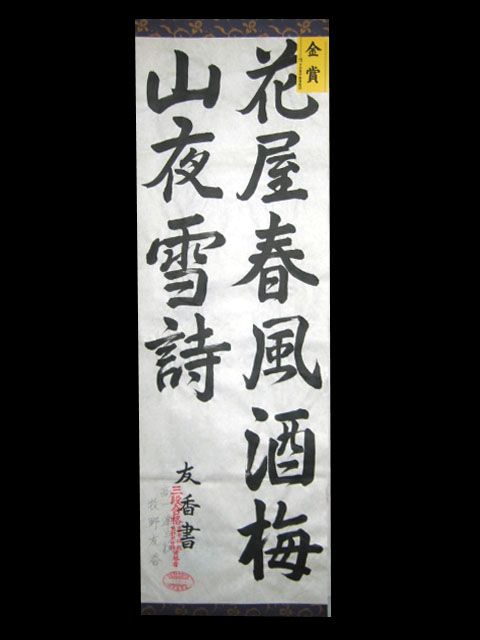 金賞
花屋春風酒梅
山夜雪詩
友香書
三段合格
牧野友香